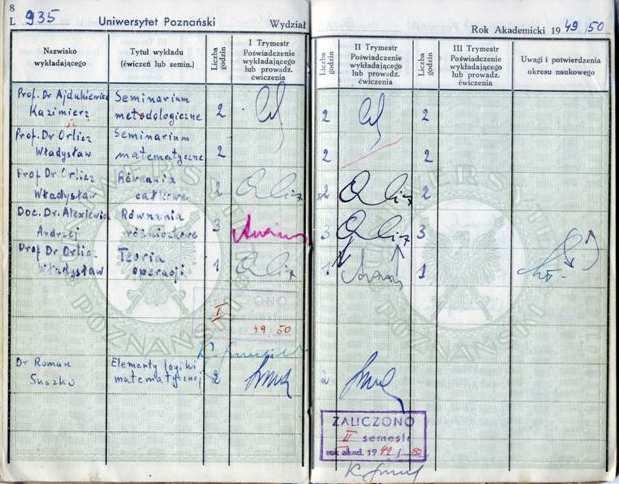 8
L 935 Uniwersytet Poznański Wydział
Rok Akademicki 19 49/50
Nazwisko wykładającego
Tytuł wykładu (ćwiczeń lub semin.)
Liczba godzin
I Trymestr Poświadczenie wykładającego lub prowadz. ćwiczenia
Liczba godzin
II Trymestr Poświadczenie wykładającego lub prowadz. ćwiczenia
Liczba godzin
III Trymestr Poświadczenie wykładającego lub prowadz. ćwiczenia
Uwagi i potwierdzenia okresu naukowego
Prof. Dr Ajdukiewicz Seminarium
Kazimierz metodologiczne 2 2 2
Prof. Dr Orlicz Seminarium
Władysław matematyczne 2 2 2
Prof. Dr Orlicz Równania
Władysław całkowe 2 2 2
Doc. Dr. Alexiewicz Równania
Andrzej różniczkowe 3 3 3
Prof Dr Orlicz Teoria
Władysław operacji 1 1 1
I
49 50
Dr Roman Elementy logiki
Suszko matematycznej 2 2
ZALICZONO
II semestr
rok akad. 1949/50